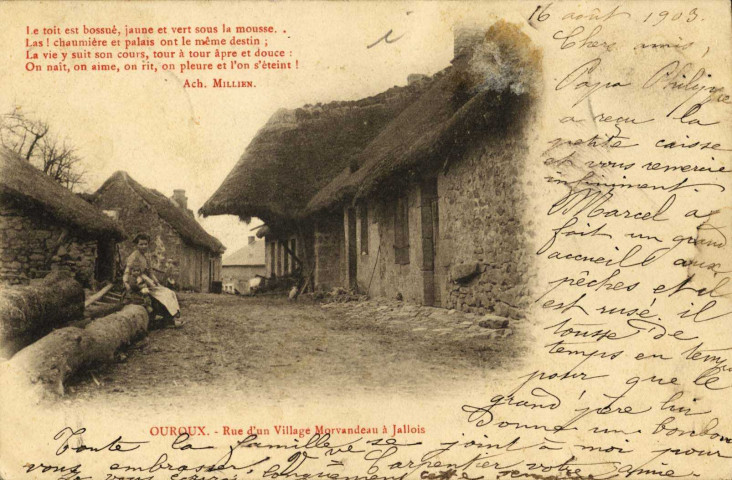 Le toit est bossué, jaune et vert sous la mousse.
Las ! chaumière et palais ont le même destin ;
La vie y suit son cours, tour à tour âpre et douce :
On naît, on aime, on rit, on pleure et l'on s'éteint !
Ach. MILLIEN.
16 août 1903.
Chers amis,
Papa Philippe
a reçu la
petite caisse
et vous remercie
infiniment.
Marcel a
fait un grand
accueil aux
pêches et il
est rusé. il
tousse de
temps en temps
pour que le
grand'père lui
donne un bonbon
OUROUX. - Rue d'un Village Morvandeau à Jallois
Toute la famille se joint à moi pour
vous embrasser. Ve Carpentier votre amie
vous écrirai longuement cette semaine